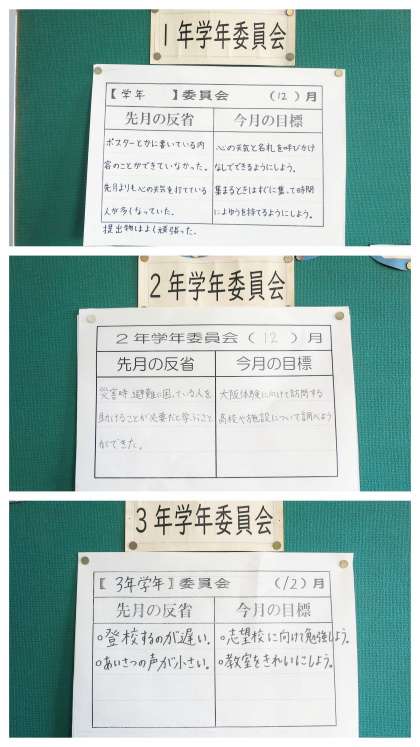 1年学年委員会
【学年　】委員会　（12）月
先月の反省
今月の目標
ポスターとかに書いている内
容のことができていなかった。
先月よりも心の天気を打てている
人が多くなっていた。
提出物はよく頑張った。
心の天気と名札を呼びかけ
なしでできるようにしよう。
集まるときはすぐに集って時間
によゆうを持てるようにしよう。
2年学年委員会
2年学年委員会（12）月
先月の反省
今月の目標
災害時、避難に困っている人を
助けることが必要だと学ぶこと
ができた。
大阪体験に向けて訪問する
高校や施設について調べよう
3年学年委員会
【3年学年】委員会　（12）月
先月の反省
今月の目標
○登校するのが遅い。
○あいさつの声が小さい。
○志望校に向けて勉強しよう。
○教室をきれいにしよう。